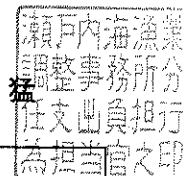 瀬戸内海漁業
調整事務所分
猛
任支出負担行
為担当官之印